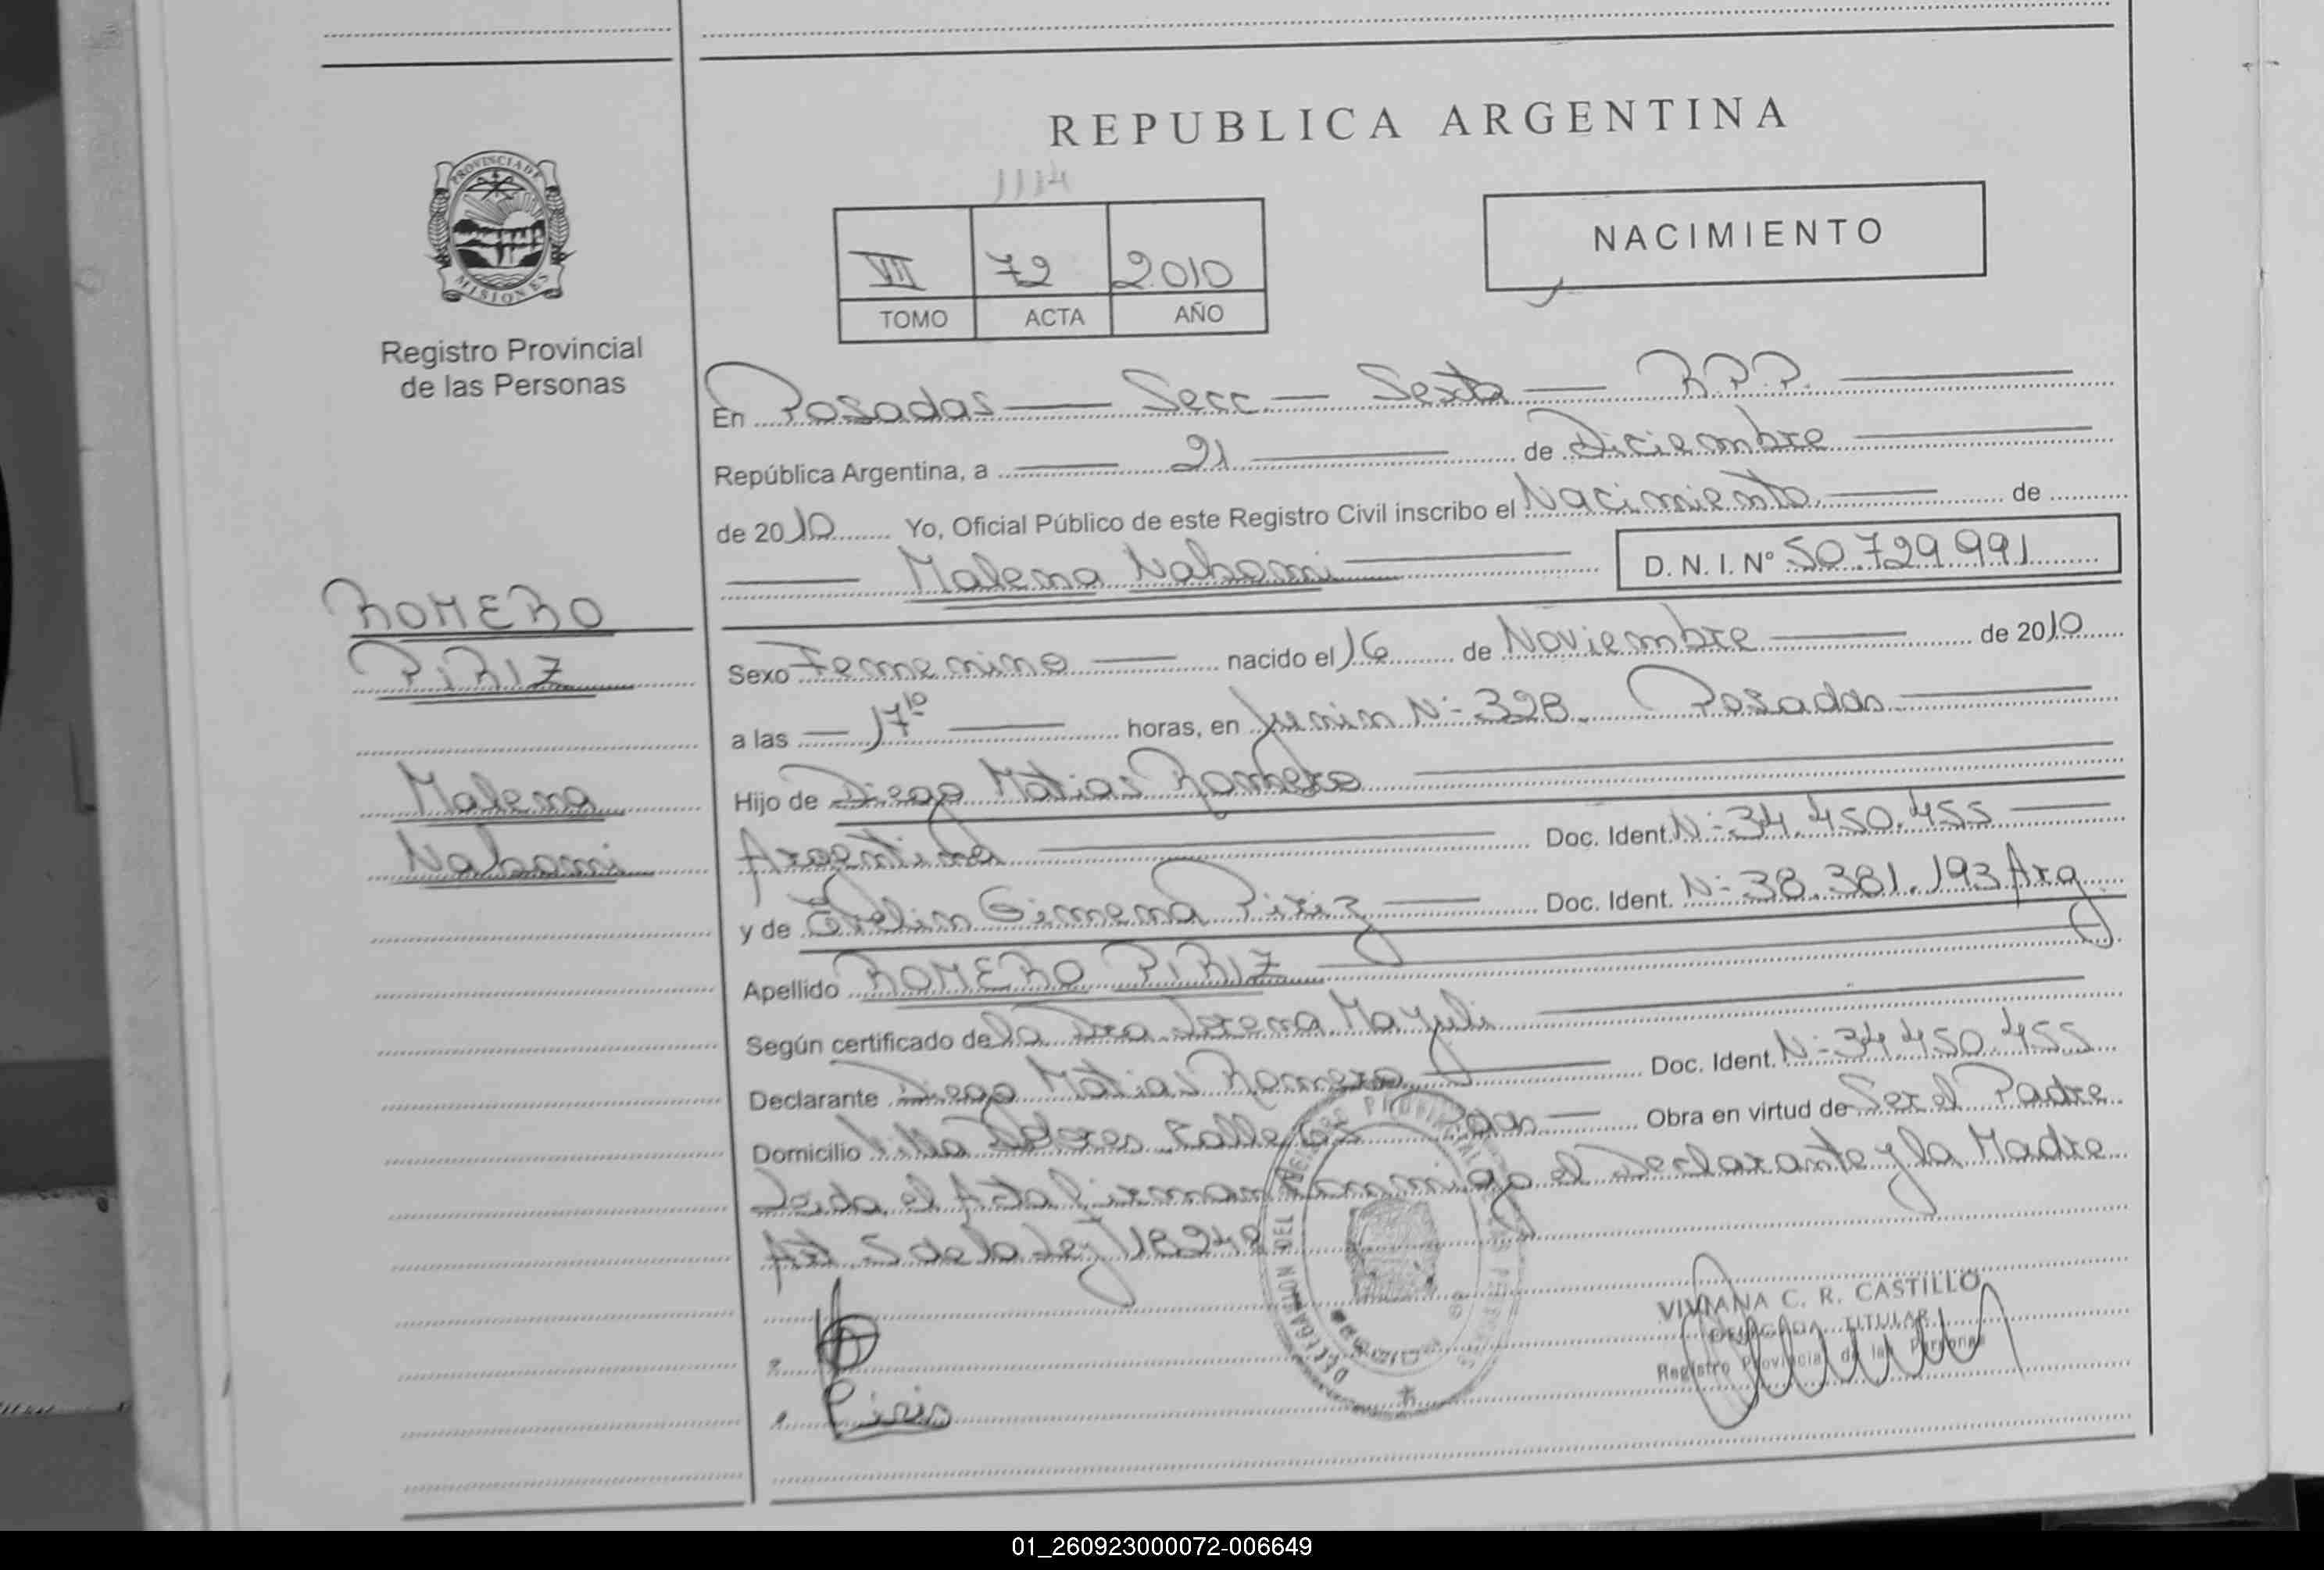 REPUBLICA ARGENTINA
1114
PROVINCIA DE
MISIONES
Registro Provincial
de las Personas
VII 72 2.010
TOMO ACTA AÑO
NACIMIENTO
En Posadas Secc. Sexta R.P.P.
República Argentina, a 21 de Diciembre
de 2010 Yo, Oficial Público de este Registro Civil inscribo el Nacimiento de
Malena Nahomi D. N. I. Nº 50.729.991
ROMERO
PIRIZ
Malena
Nahomi
Sexo Femenino nacido el 16 de Noviembre de 2010
a las 17 10 horas, en Junin Nº 328. Posadas
Hijo de Diego Matias Romero
Argentina Doc. Ident. Nº 34.450.455
y de Evelin Gimena Piriz Doc. Ident. Nº 38.381.193 Arg.
Apellido ROMERO PIRIZ
Según certificado de la Dra Lorena Mayuli
Declarante Diego Matias Romero Doc. Ident. Nº 34.450.455
Domicilio Villa calle Pdas Obra en virtud de Ser el Padre
Leida el Acta firman conmigo el Declarante y la Madre
Act. de la Ley 18248
Piris
DELEGACION DEL REGISTRO PROVINCIAL DE LAS PERSONAS
VIVIANA C. R. CASTILLO
DELEGADA TITULAR
Registro Provincial de las Personas
01_260923000072-006649